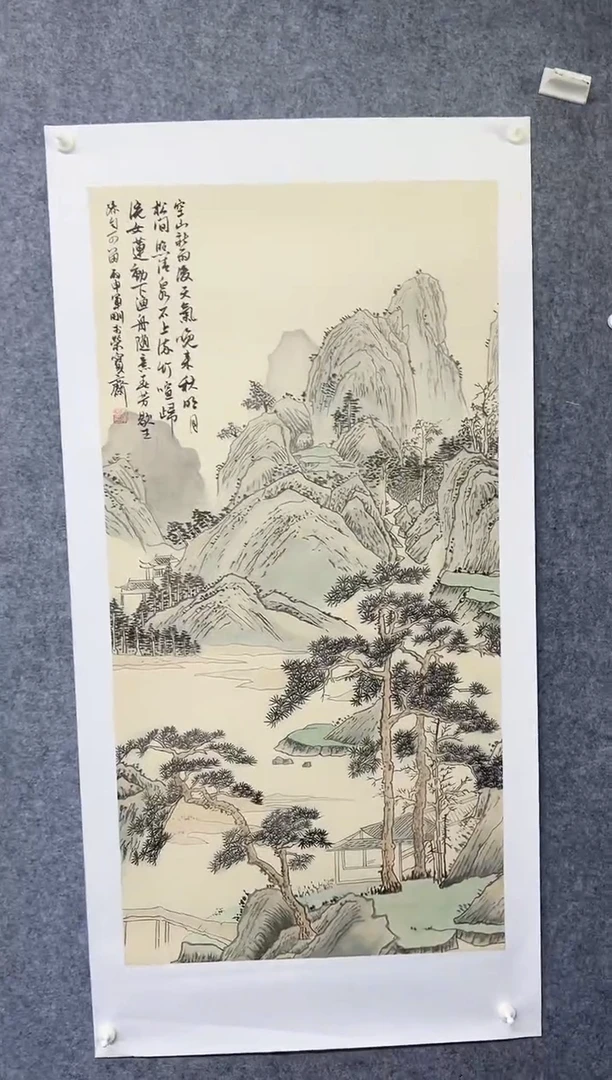 空山新雨後天氣晚來秋明月
松间照清泉石上流竹喧歸
浣女蓮動下漁舟隨意春芳歇王
孫自可留 丙申榮寶齋